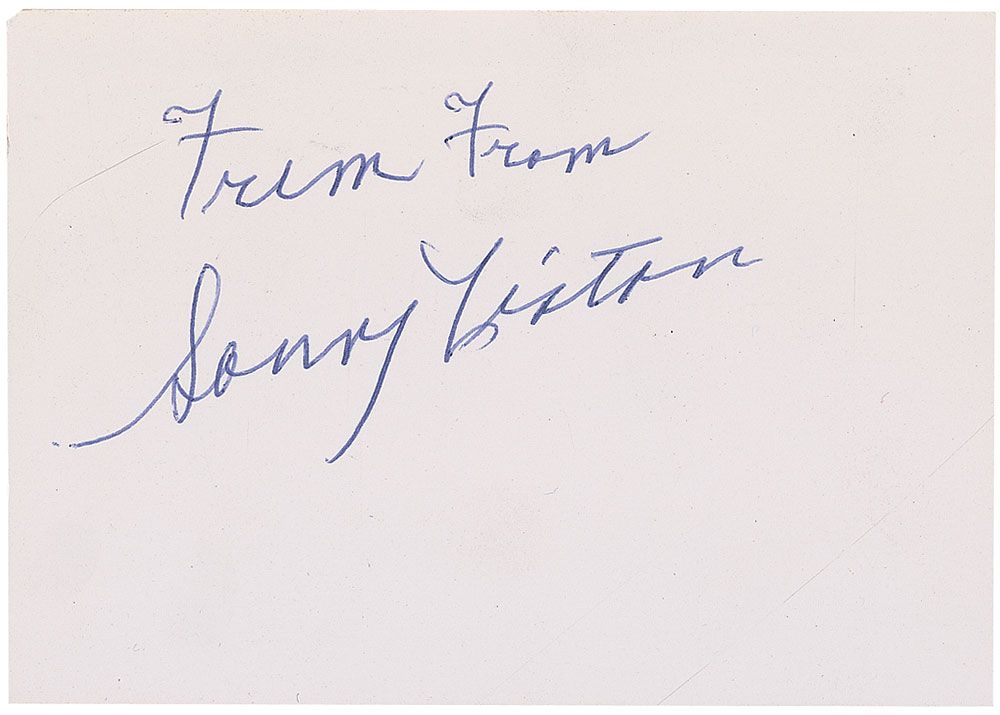 From From
Sonny Liston